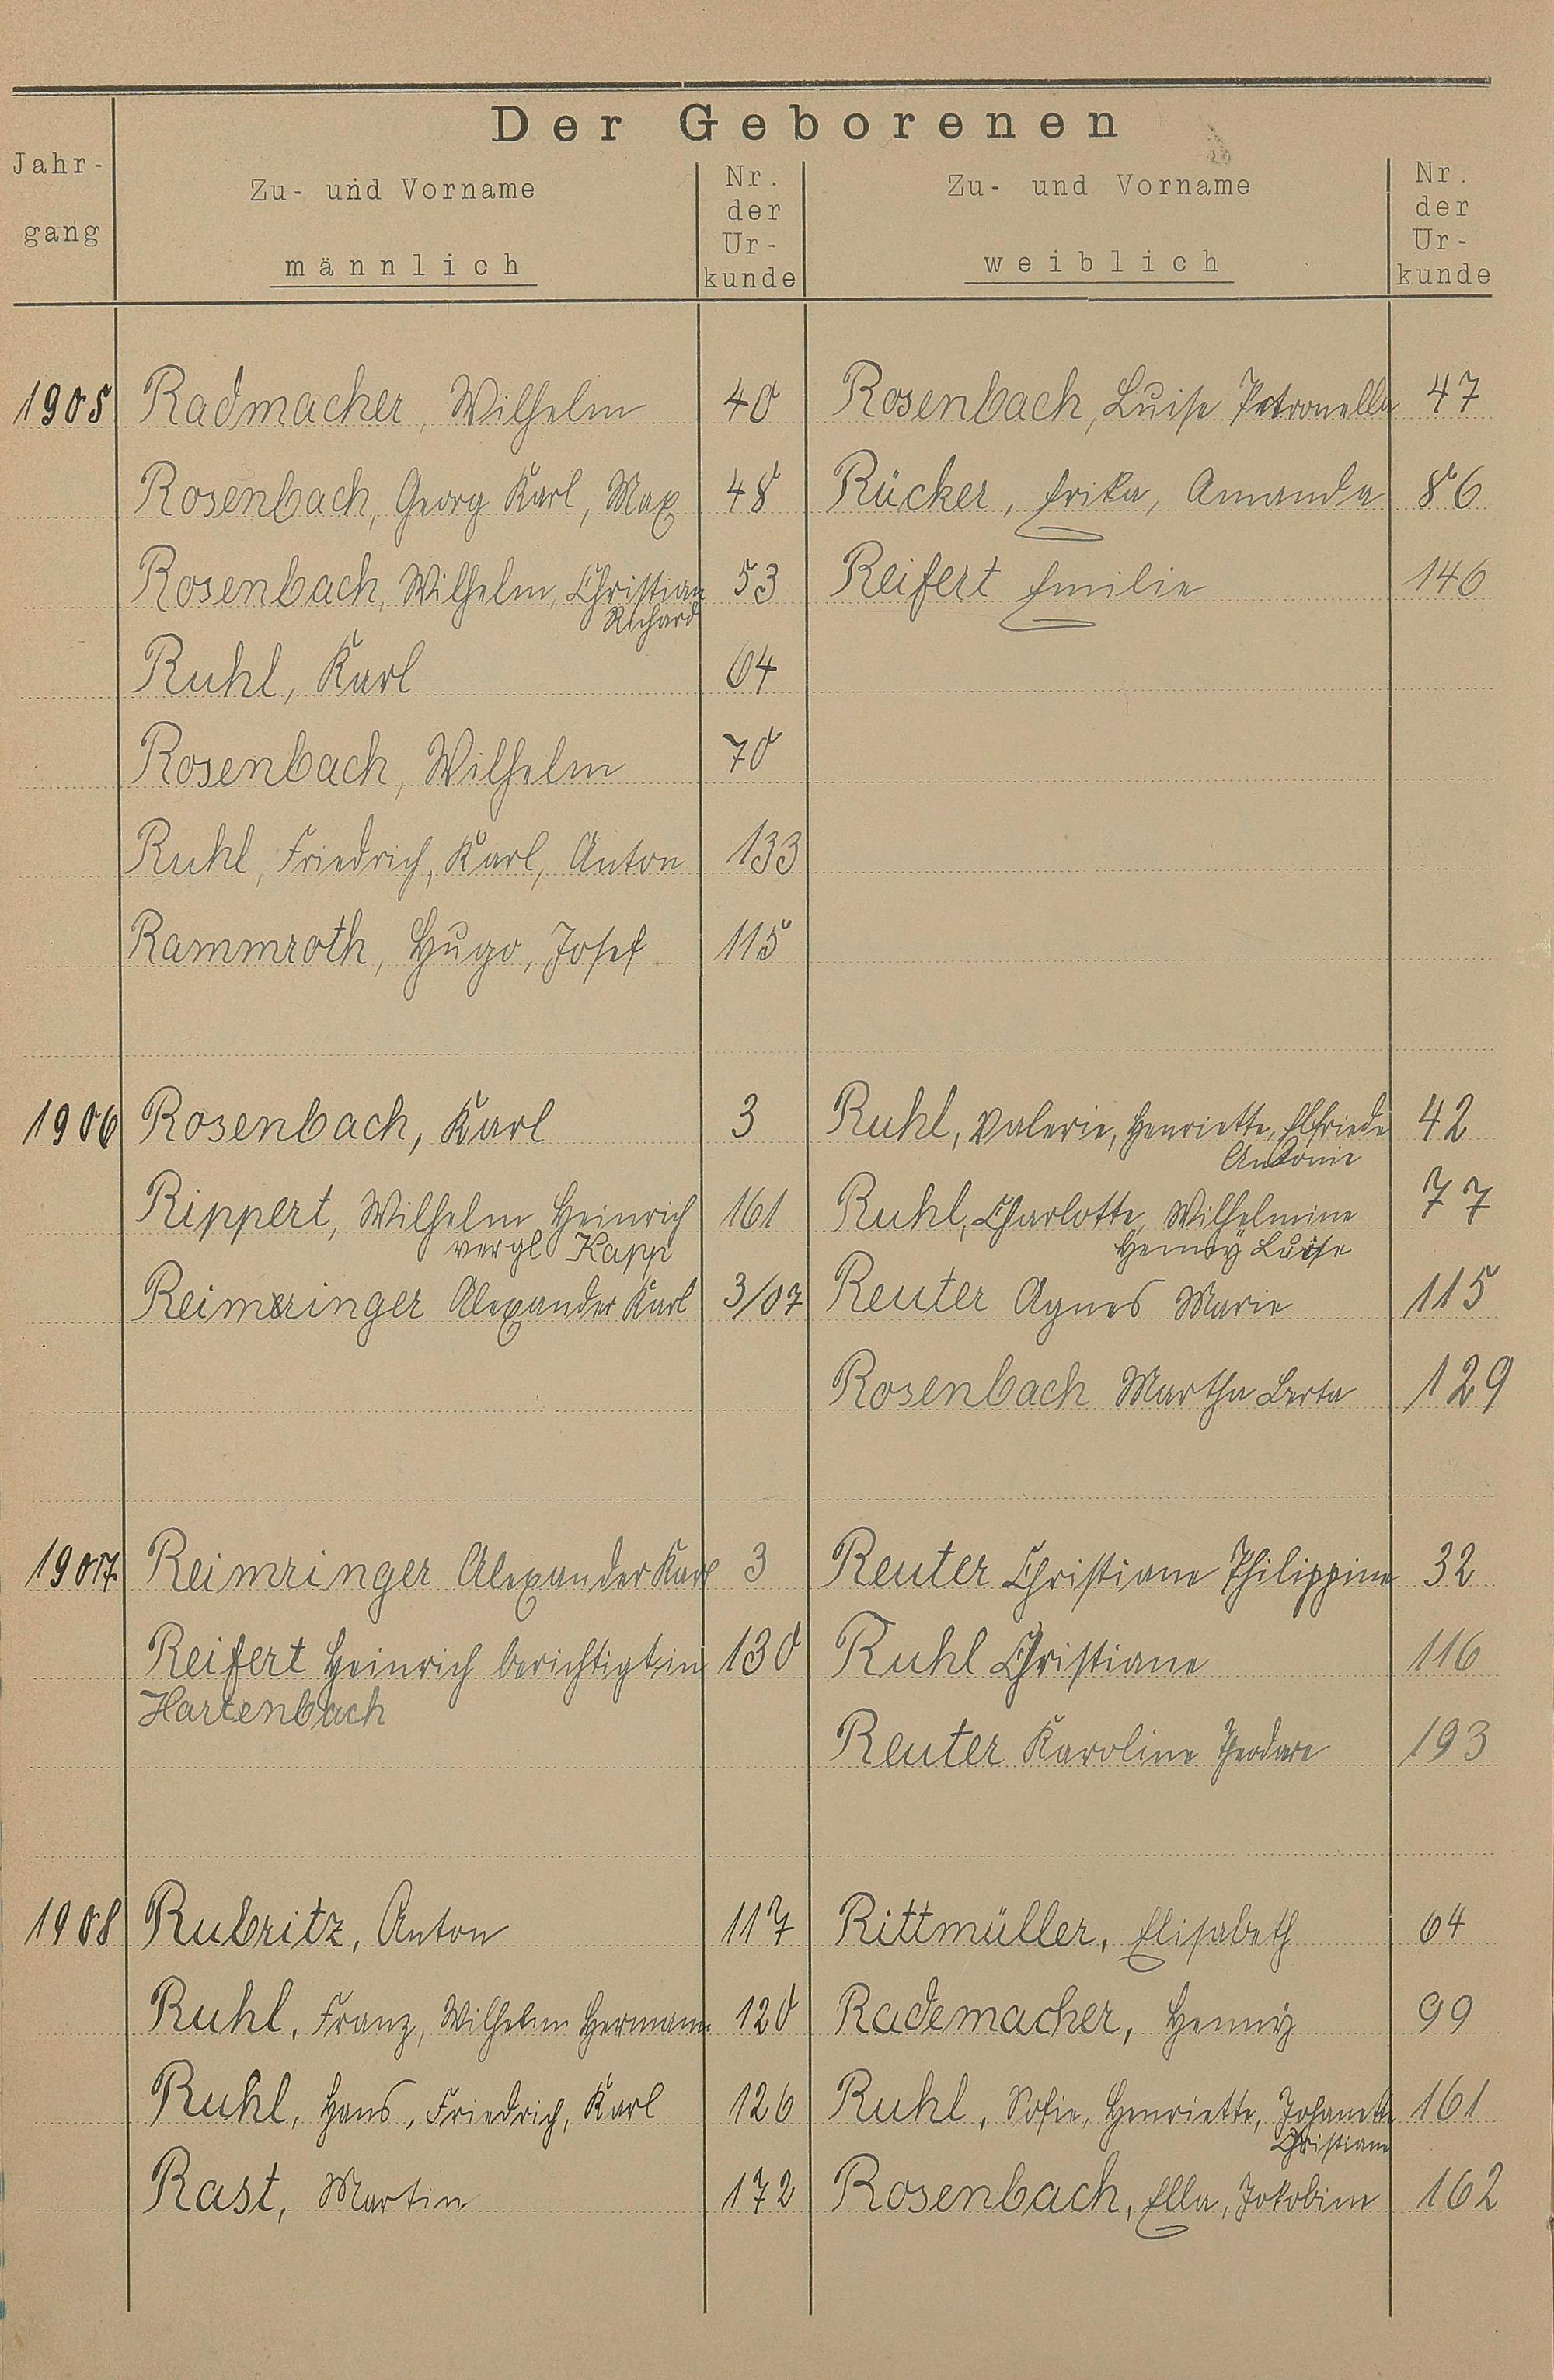 Der Geborenen
Jahr-
gang
Zu- und Vorname
männlich
Nr.
der
Ur-
kunde
Zu- und Vorname
weiblich
Nr.
der
Ur-
kunde
1905 Radmacher, Wilhelm 40 Rosenbach, Luise Petronella 47
Rosenbach, Georg Karl, Max 48 Rücker, Erika, Amanda 86
Rosenbach, Wilhelm, Christian 53 Reifert Emilie 146
Richard
Ruhl, Karl 64
Rosenbach, Wilhelm 70
Ruhl, Friedrich, Karl, Anton 133
Rammroth, Hugo, Josef 115
1906 Rosenbach, Karl 3 Ruhl, Valerie, Henriette, Elfriede 42
Antonie
Rippert, Wilhelm Heinrich 161 Ruhl, Charlotte, Wilhelmine 77
vergl Kapp Henny Luise
Reimeringer Alexander Karl 3/07 Reuter Agnes Marie 115
Rosenbach Martha Berta 129
1907 Reimringer Alexander Karl 3 Reuter Christiane Philippine 32
Reifert Heinrich berichtigt in 130 Ruhl Christiane 116
Hartenbach
Reuter Karoline Theodore 193
1908 Rubritz, Anton 117 Rittmüller, Elisabeth 64
Ruhl, Franz, Wilhelm Hermann 120 Rademacher, Henny 99
Ruhl, Hans, Friedrich, Karl 126 Ruhl, Sofie, Henriette, Johanette 161
Christiane
Rast, Martin 172 Rosenbach, Ella, Jakobine 162